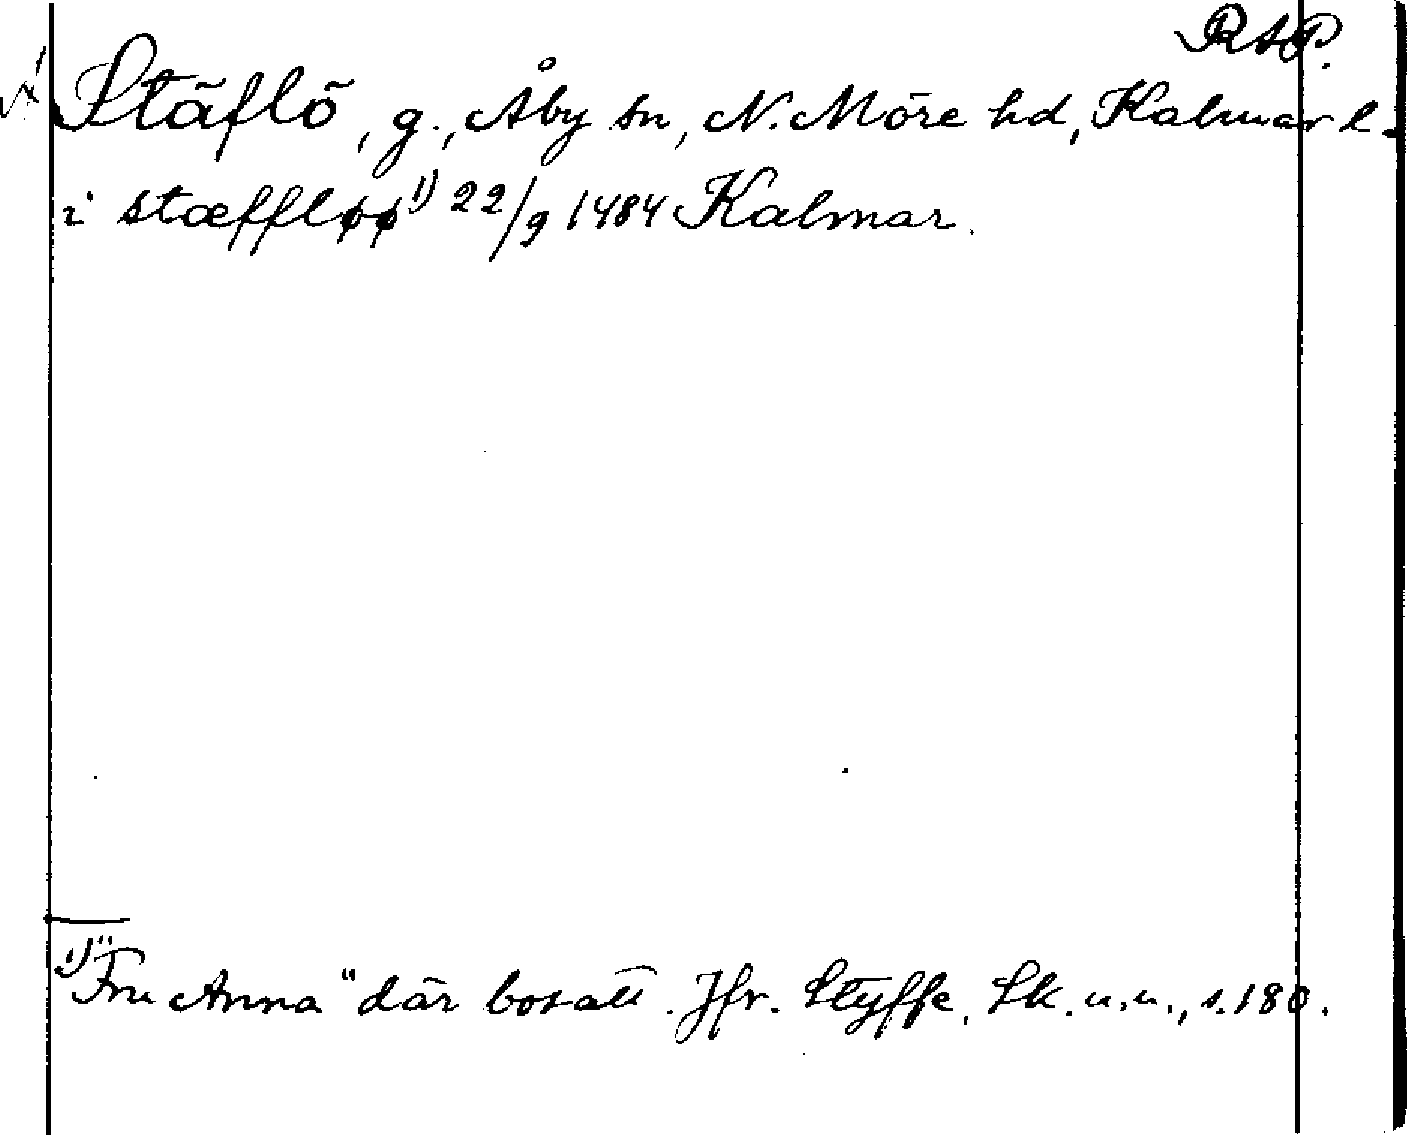 RAP.
Stäflö, g., Åby sn, N. Möre hd, Kalmar l.
i stæffløø 1) 22/9 1484 Kalmar.
1) "Fru Anna" där bosatt. Jfr. Styffe, Sk. u. u., s. 180.